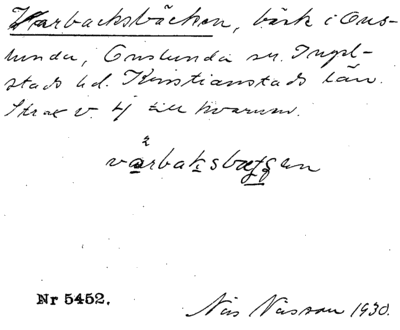 Harbacksbäcken, bäck i Ons-
lunda, Onslunda sn. Ingel-
stads hd. Kristianstads län.
Strax v. ifr till kvarnen.
vàrbaksbæggen
Nr 5452.
Nils Nassau 1930.